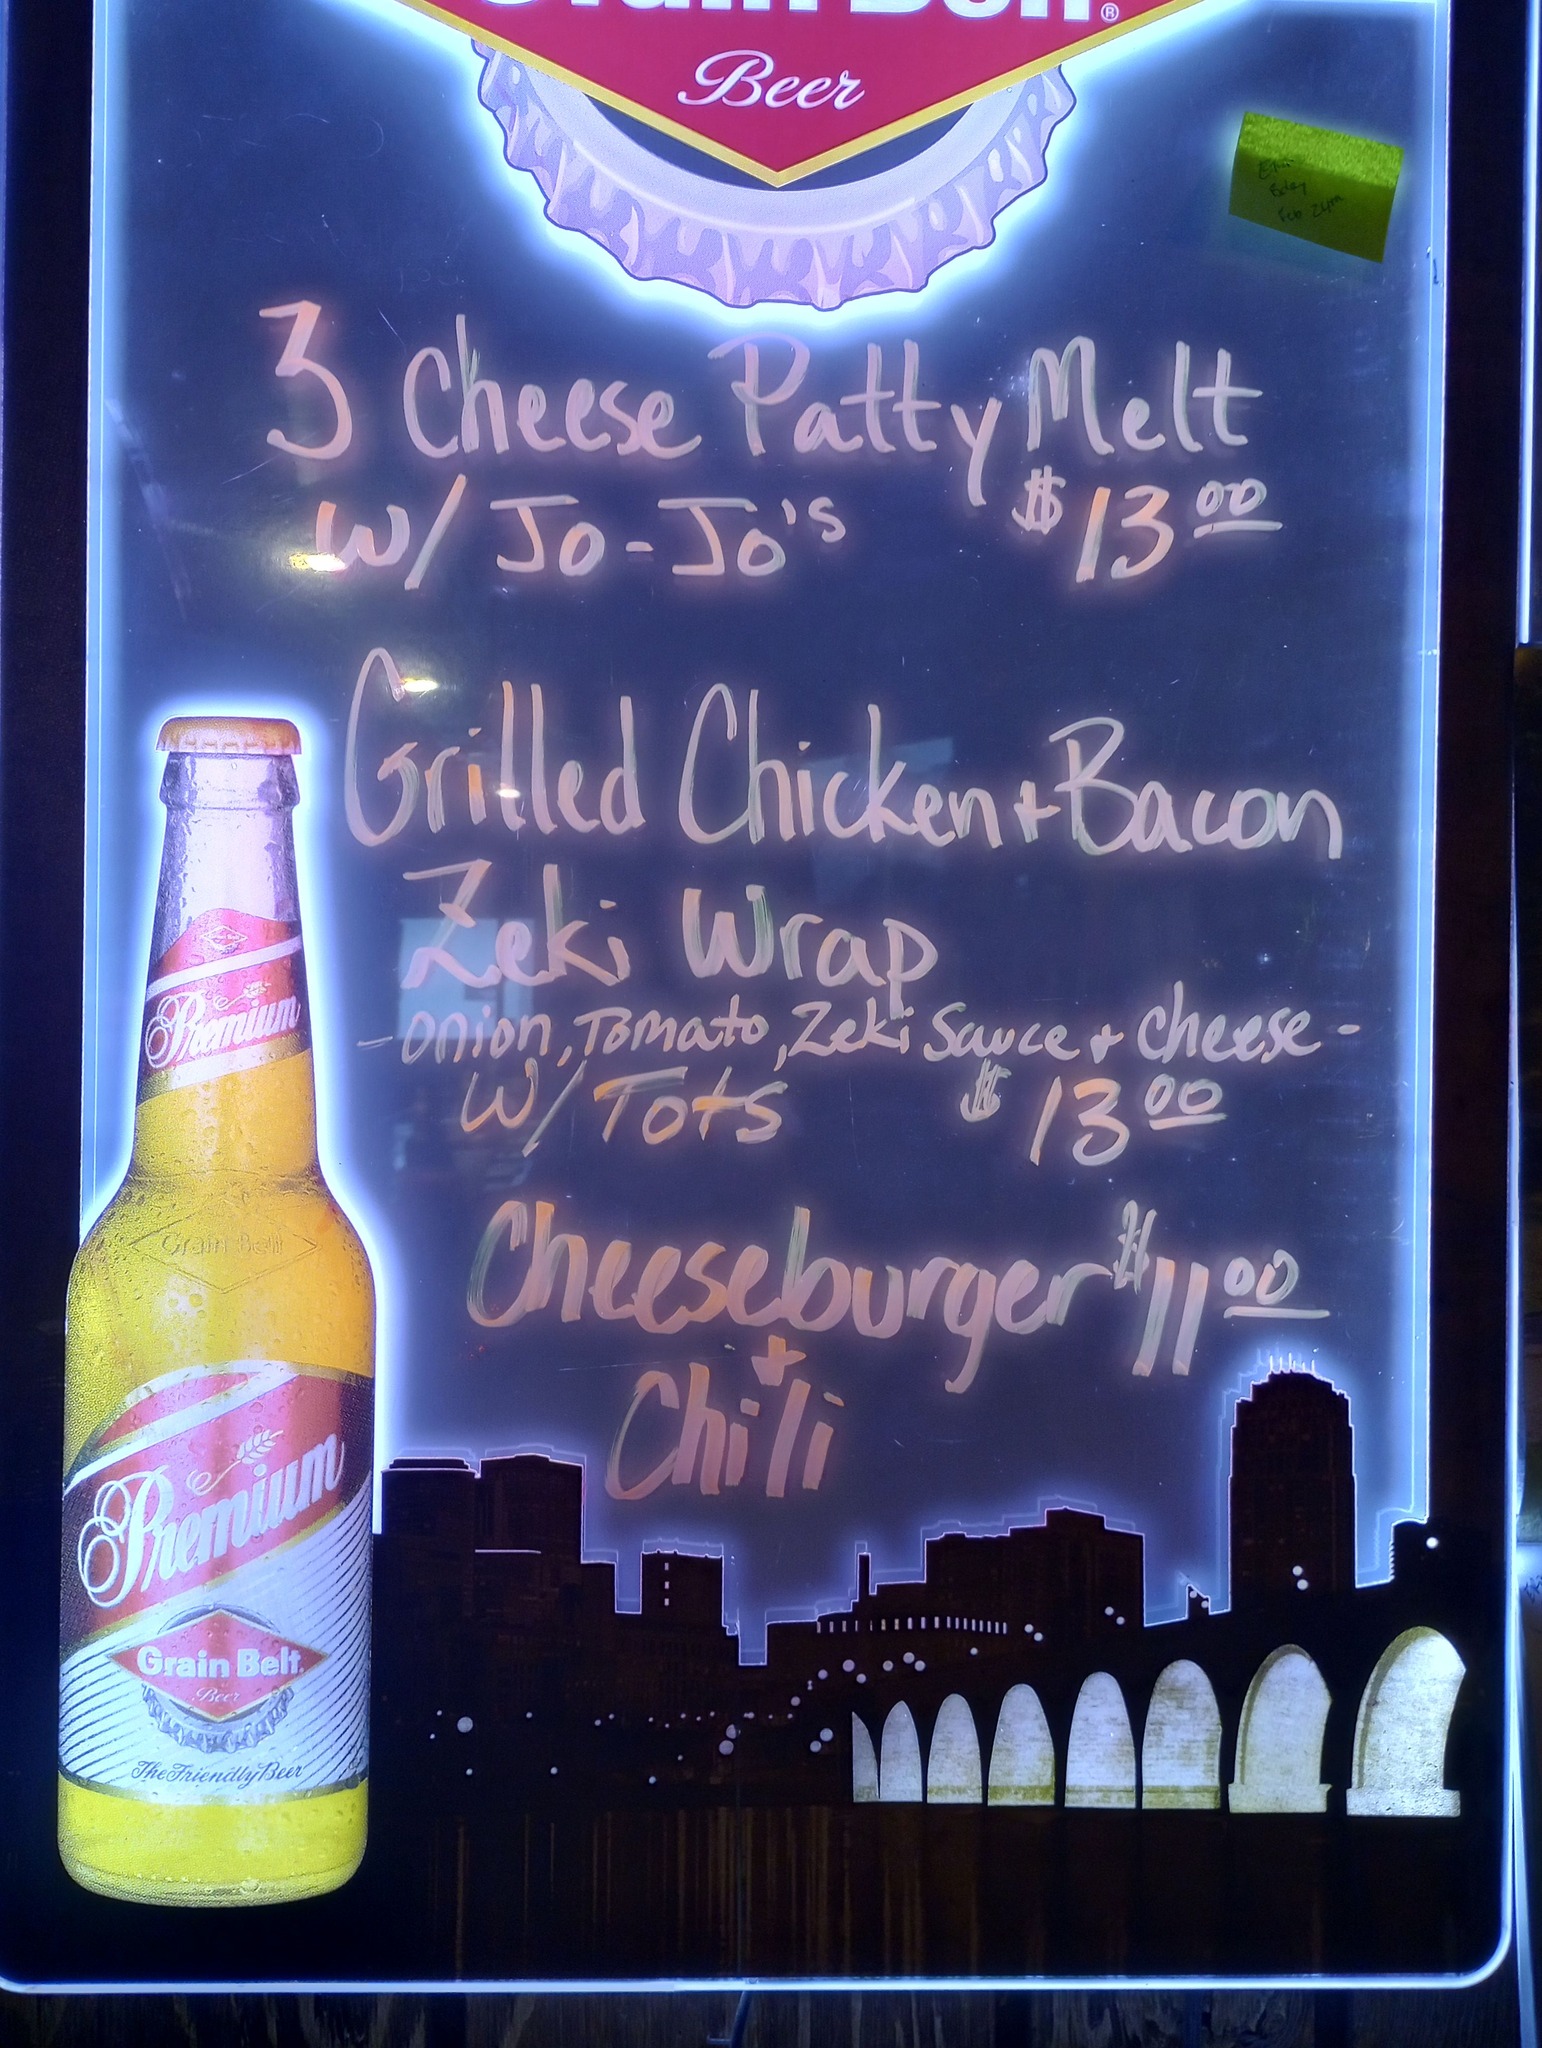 Grain Belt®
Beer
Bday
Feb 24th
3 Cheese Patty Melt
w/ Jo-Jo's $13.00
Grilled Chicken + Bacon
Zeki Wrap
- onion, Tomato, Zeki Sauce + Cheese -
w/ Tots $13.00
Cheeseburger $11.00
+
Chili
Grain Belt
Premium
Grain Belt
Premium
Grain Belt
Beer
The Friendly Beer